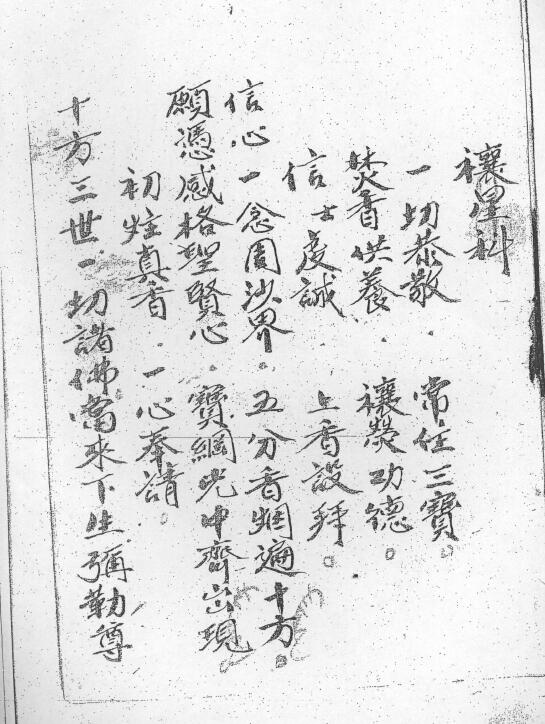 禳星科
一切恭敬　常住三寶。
焚香供養．禳熒功德。
信士虔誠　上香設拜。
信心一念周沙界．五分香烟遍十方。
願憑感格聖賢心．寶網光中齊出現
初炷真香．一心奉請。
十方三世一切諸佛當來下生彌勒尊